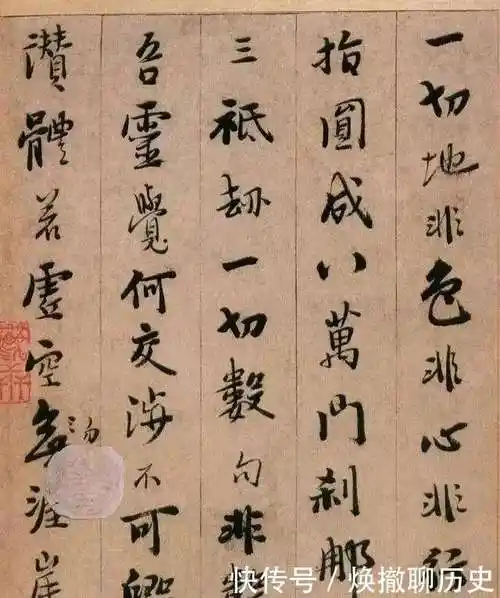 一切地非色非心非行
指圓成八萬門刹那
三祇劫一切數句非數
吾靈覺何交涉不可毀
讚體若虛空無涯岸
勿
快传号 / 焕撤聊历史